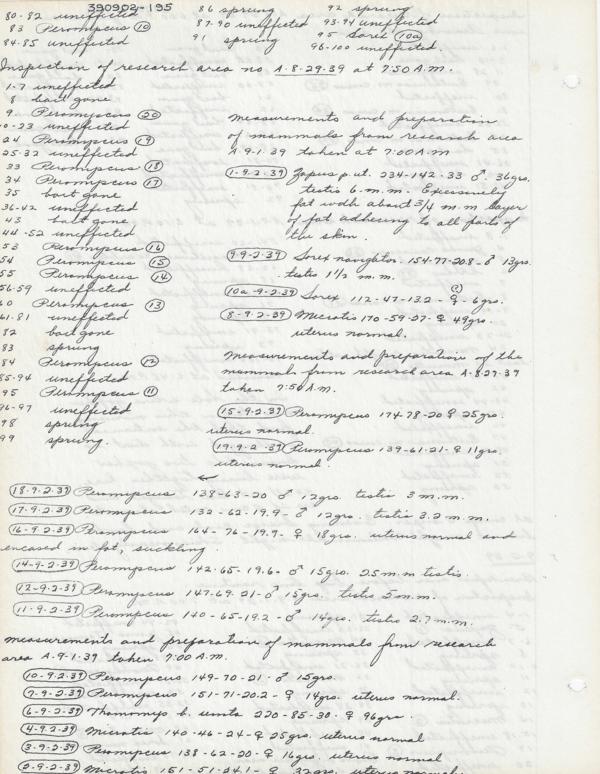 390902-195
80-82 uneffected
83 Peromyscus (10)
84-85 uneffected
86 sprung
87-90 uneffected
91 sprung
92 sprung
93-94 uneffected
95 Sorex (10a)
96-100 uneffected.
Inspection of research area no A-8-29-39 at 7:50 A.M.
1-7 uneffected
8 bait gone
9 Peromyscus (20)
10-23 uneffected
24 Peromyscus (19)
25-32 uneffected
33 Peromyscus (18)
34 Peromyscus (17)
35 bait gone
36-42 uneffected
43 bait gone
44-52 uneffected
53 Peromyscus (16)
54 Peromyscus (15)
55 Peromyscus (14)
56-59 uneffected
60 Peromyscus (13)
61-81 uneffected
82 bait gone
83 sprung
84 Peromyscus (12)
85-94 uneffected
95 Peromyscus (11)
96-97 uneffected
98 sprung
99 sprung.
Measurements and preparation
of mammals from research area
A-9-1-39 taken at 7:00 A.M.
(1-9-2-39) Zapus p. ut. 234-142-33 ♂. 36grs.
testis 6 m.m. Excessively
fat width about 3/4 m.m layer
of fat adhering to all parts of
the skin.
(9-9-2-39) Sorex navigator. 154-77-20.8-♂ 13grs.
testis 1½ m.m.
(10a-9-2-39) Sorex 112-47-13.2-♀(?)-6grs.
(8-9-2-39) Microtis 170-59-27-♀ 49grs.
uterus normal.
Measurements and preparation of the
mammals from research area A-8-29-39
taken 7:50 A.M.
(15-9-2-39) Peromyscus 174-78-20 ♀ 25grs.
uterus normal.
(19-9-2-39) Peromyscus 139-61-21-♀ 11grs.
uterus normal.
←
(18-9-2-39) Peromyscus 138-63-20 ♂ 12grs. testis 3 m.m.
(17-9-2-39) Peromyscus 132-62-19.9-♂ 12grs. testis 3.2 m.m.
(16-9-2-39) Peromyscus 164-76-19.9-♀ 18grs. uterus normal and
encased in fat, suckling.
(14-9-2-39) Peromyscus 142-65-19.6-♂ 15grs. 2.5 m.m testis.
(12-9-2-39) Peromyscus 147-69-21-♂ 15grs. testis 5 m.m.
(11-9-2-39) Peromyscus 140-65-19.2-♂ 14grs. testis 2.7 m.m.
Measurements and preparation of mammals from research
area A-9-1-39 taken 7:00 A.M.
(10-9-2-39) Peromyscus 149-70-21-♂ 15grs.
(7-9-2-39) Peromyscus 151-71-20.2-♀ 14grs. uterus normal.
(6-9-2-39) Thomomys b. uinta 220-85-30-♀ 96grs.
(4-9-2-39) Microtis 140-46-24-♀ 25grs. uterus normal
(3-9-2-39) Peromyscus 138-62-20-♀ 16grs. uterus normal
(2-9-2-39) Microtis 151-51-24.1-♀ 32grs. uterus normal